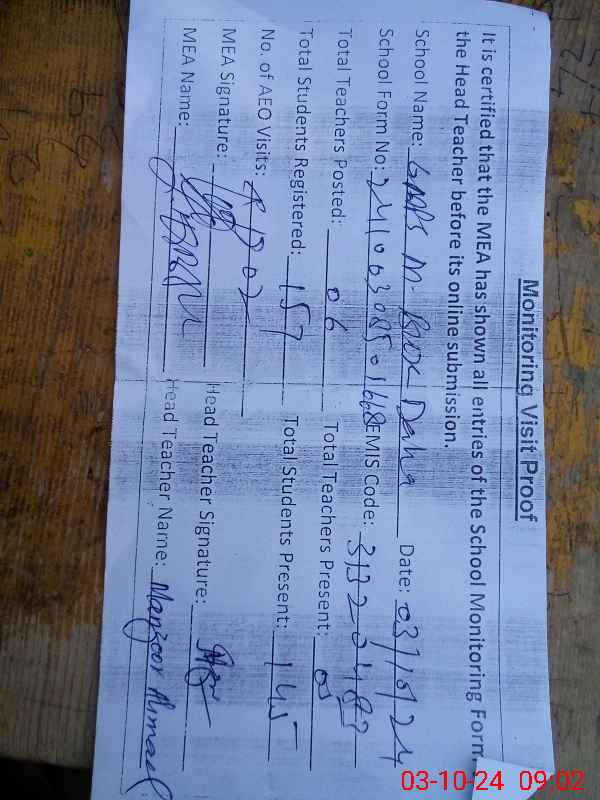 Monitoring Visit Proof
It is certified that the MEA has shown all entries of the School Monitoring Form
the Head Teacher before its online submission.
School Name: M. Bux Daha Date: 03/10/24
School Form No: EMIS Code: 31320483
Total Teachers Posted: 06 Total Teachers Present: 05
Total Students Registered: 157 Total Students Present: 145
No. of AEO Visits: 02
MEA Signature: Head Teacher Signature:
MEA Name: Head Teacher Name: Manzoor Ahmed
03-10-24 09:02